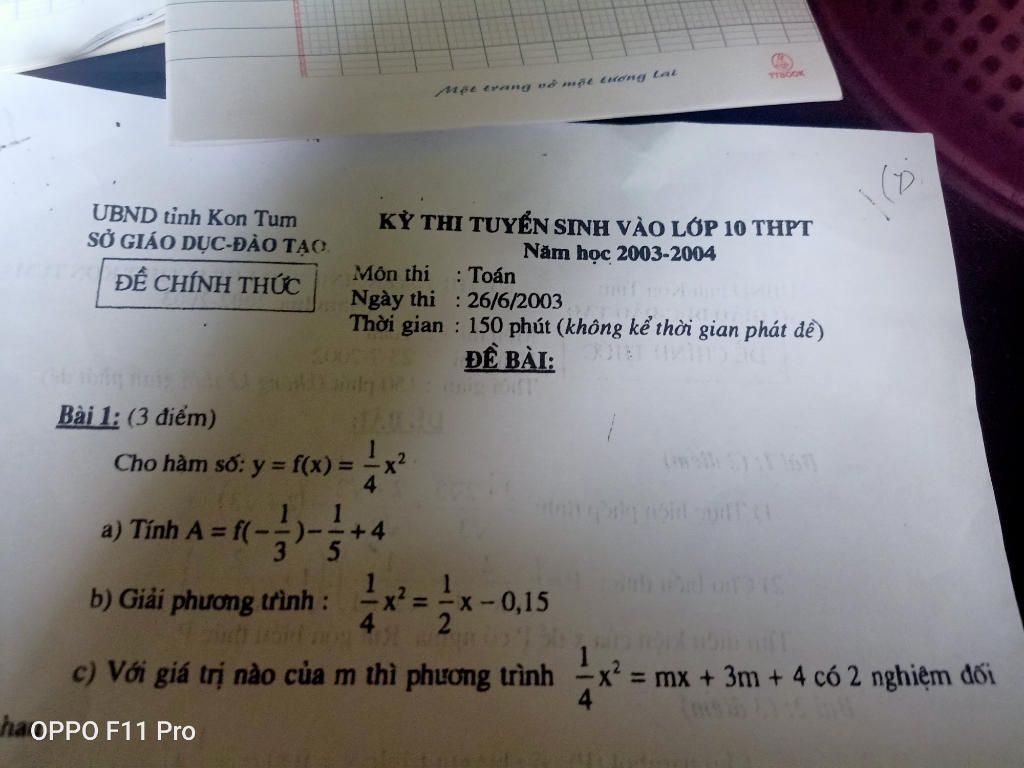 Một trang vở một tương lai
TTBOOK
UBND tỉnh Kon Tum
SỞ GIÁO DỤC-ĐÀO TẠO
ĐỀ CHÍNH THỨC
KỲ THI TUYỂN SINH VÀO LỚP 10 THPT
Năm học 2003-2004
Môn thi : Toán
Ngày thi : 26/6/2003
Thời gian : 150 phút (không kể thời gian phát đề)
ĐỀ BÀI:
Bài 1: (3 điểm)
Cho hàm số: y = f(x) = 1/4 x²
a) Tính A = f(-1/3) - 1/5 + 4
b) Giải phương trình : 1/4 x² = 1/2 x - 0,15
c) Với giá trị nào của m thì phương trình 1/4 x² = mx + 3m + 4 có 2 nghiệm đối
OPPO F11 Pro